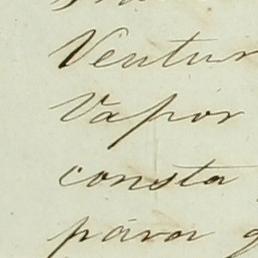 Ventur
Vapor
consta
para g